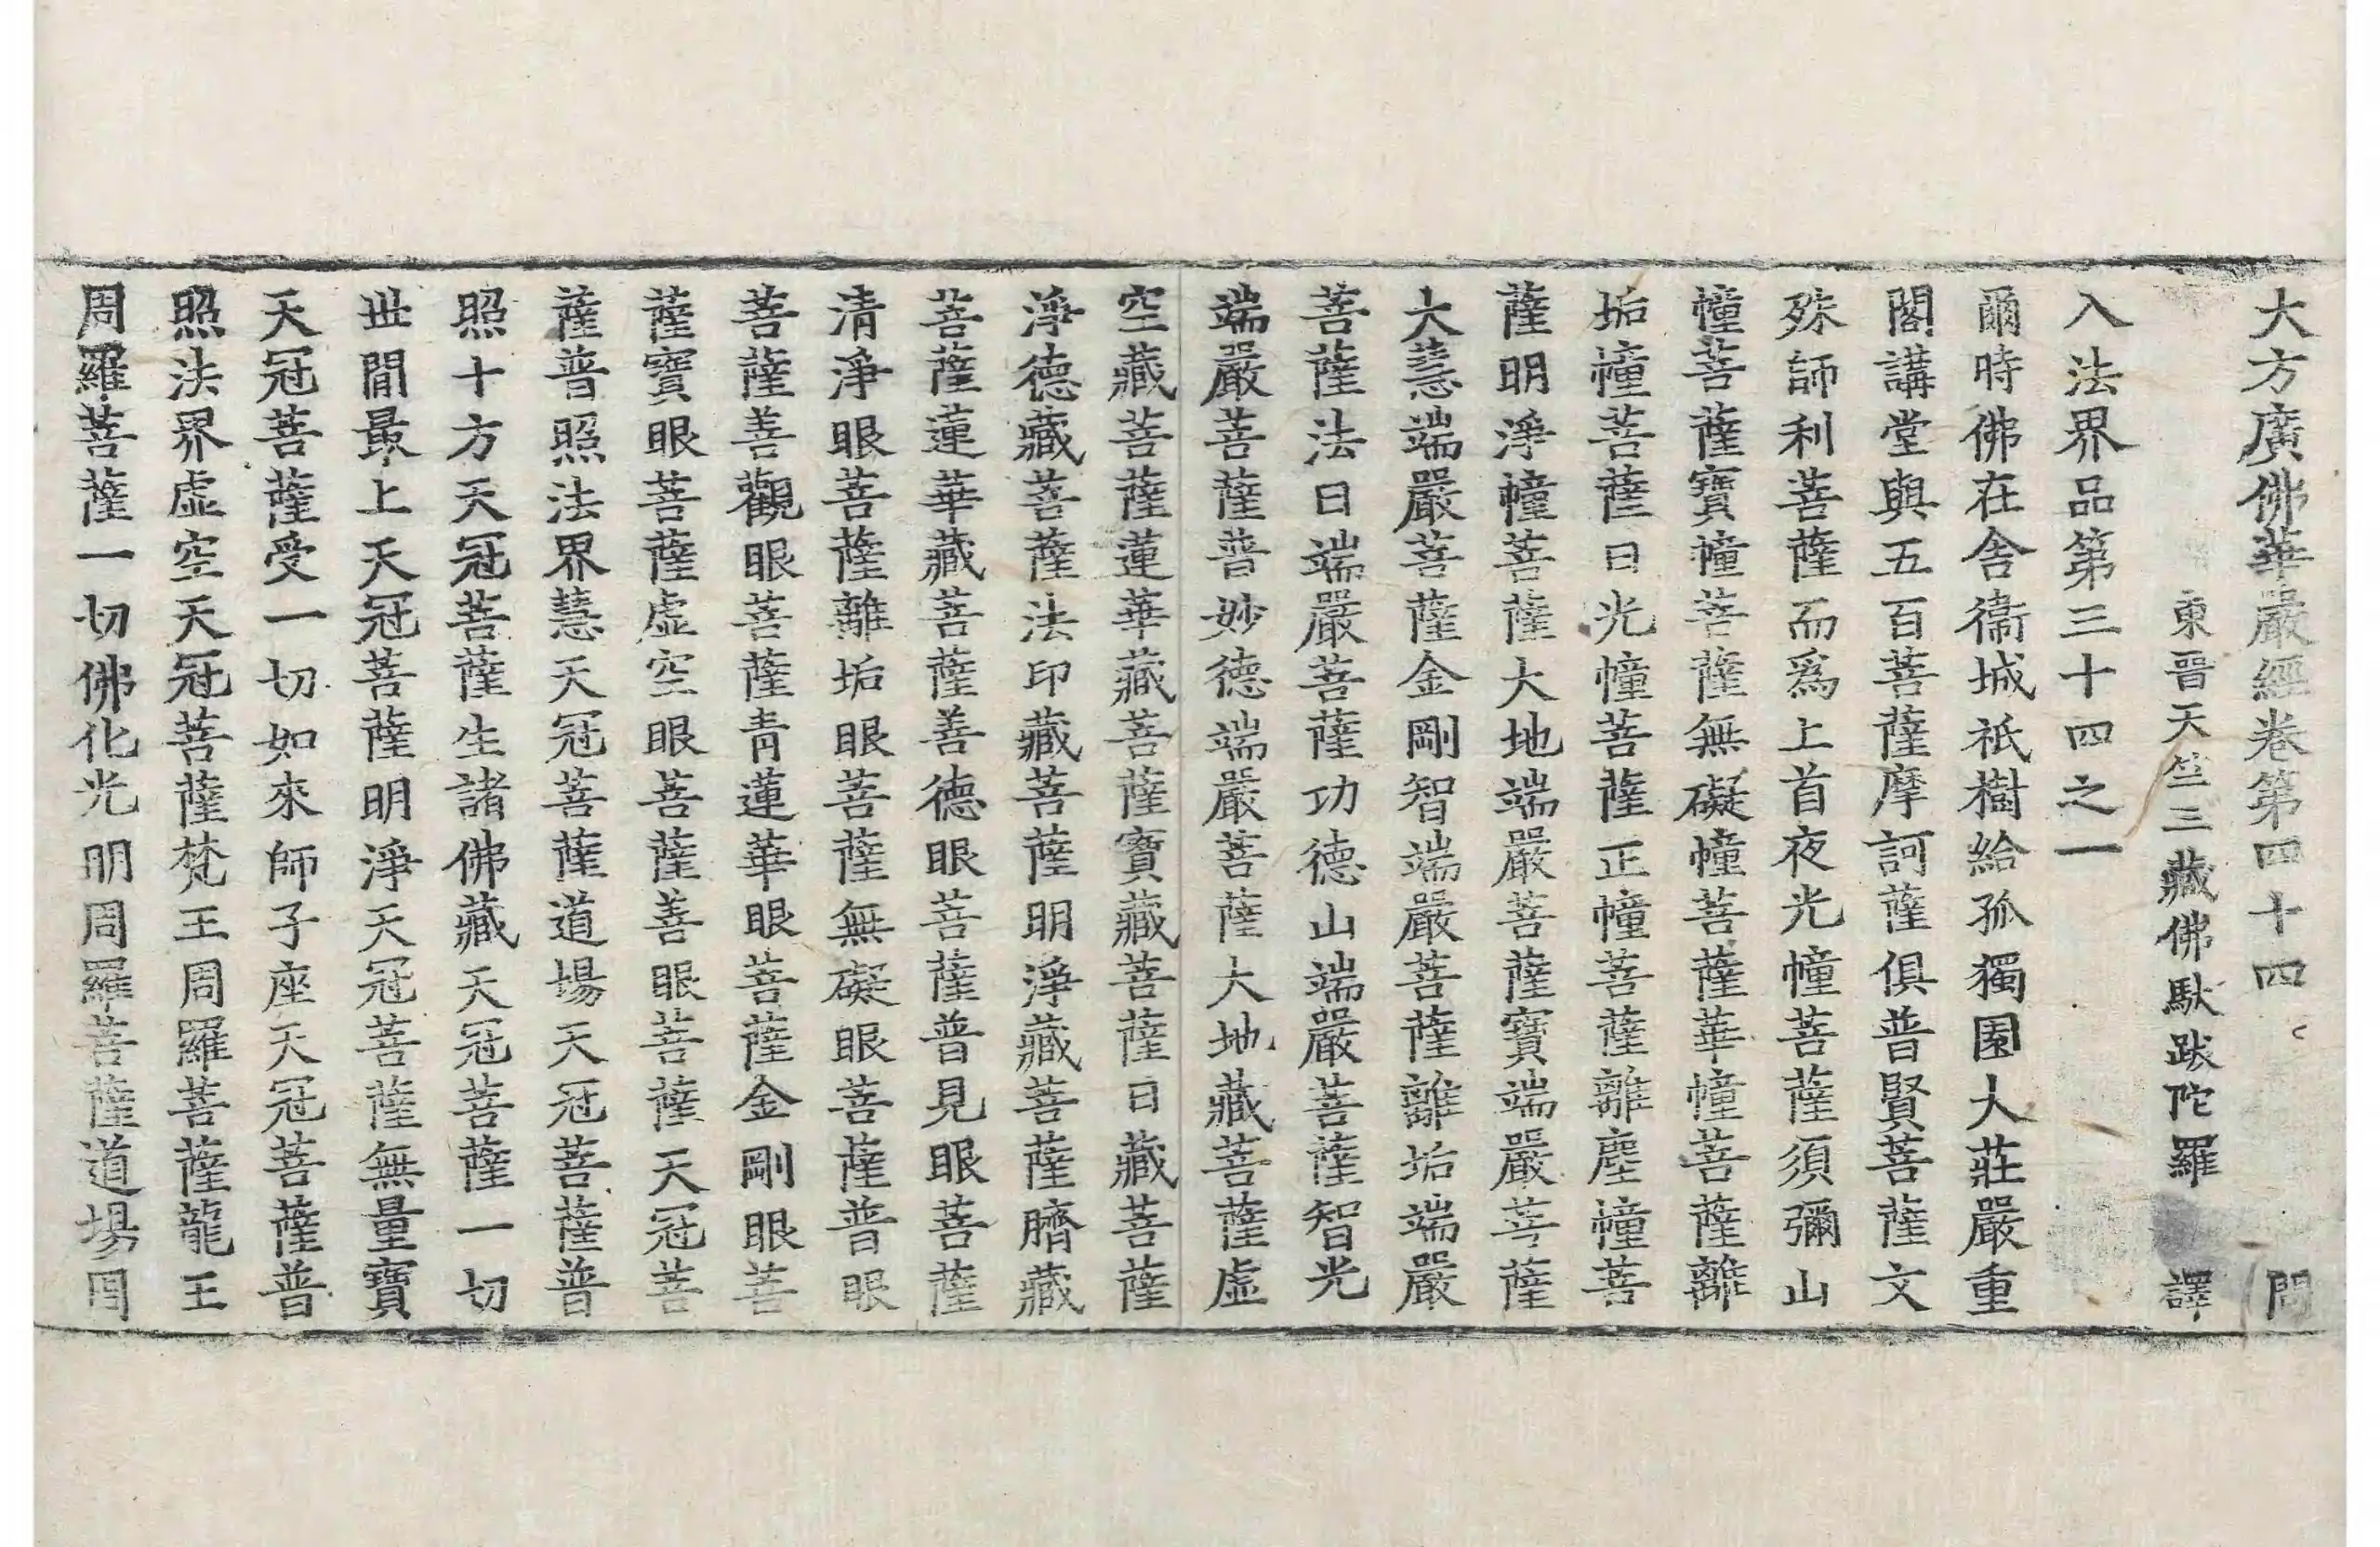 大方廣佛華嚴經卷第四十四 問
東晉天竺三藏佛馱跋陀羅 譯
入法界品第三十四之一
爾時佛在舍衞城祇樹給孤獨園大莊嚴重
閣講堂與五百菩薩摩訶薩俱普賢菩薩文
殊師利菩薩而爲上首夜光幢菩薩須彌山
幢菩薩寶幢菩薩無礙幢菩薩華幢菩薩離
垢幢菩薩日光幢菩薩正幢菩薩離塵幢菩
薩明淨幢菩薩大地端嚴菩薩寶端嚴菩薩
大慧端嚴菩薩金剛智端嚴菩薩離垢端嚴
菩薩法日端嚴菩薩功德山端嚴菩薩智光
端嚴菩薩普妙德端嚴菩薩大地藏菩薩虛
空藏菩薩蓮華藏菩薩寶藏菩薩日藏菩薩
淨德藏菩薩法印藏菩薩明淨藏菩薩臍藏
菩薩蓮華藏菩薩善德眼菩薩普見眼菩薩
清淨眼菩薩離垢眼菩薩無礙眼菩薩普眼
菩薩善觀眼菩薩青蓮華眼菩薩金剛眼菩
薩寶眼菩薩虛空眼菩薩善眼菩薩天冠菩
薩普照法界慧天冠菩薩道場天冠菩薩普
照十方天冠菩薩生諸佛藏天冠菩薩一切
世閒最上天冠菩薩明淨天冠菩薩無量寶
天冠菩薩受一切如來師子座天冠菩薩普
照法界虛空天冠菩薩梵王周羅菩薩龍王
周羅菩薩一切佛化光明周羅菩薩道場周